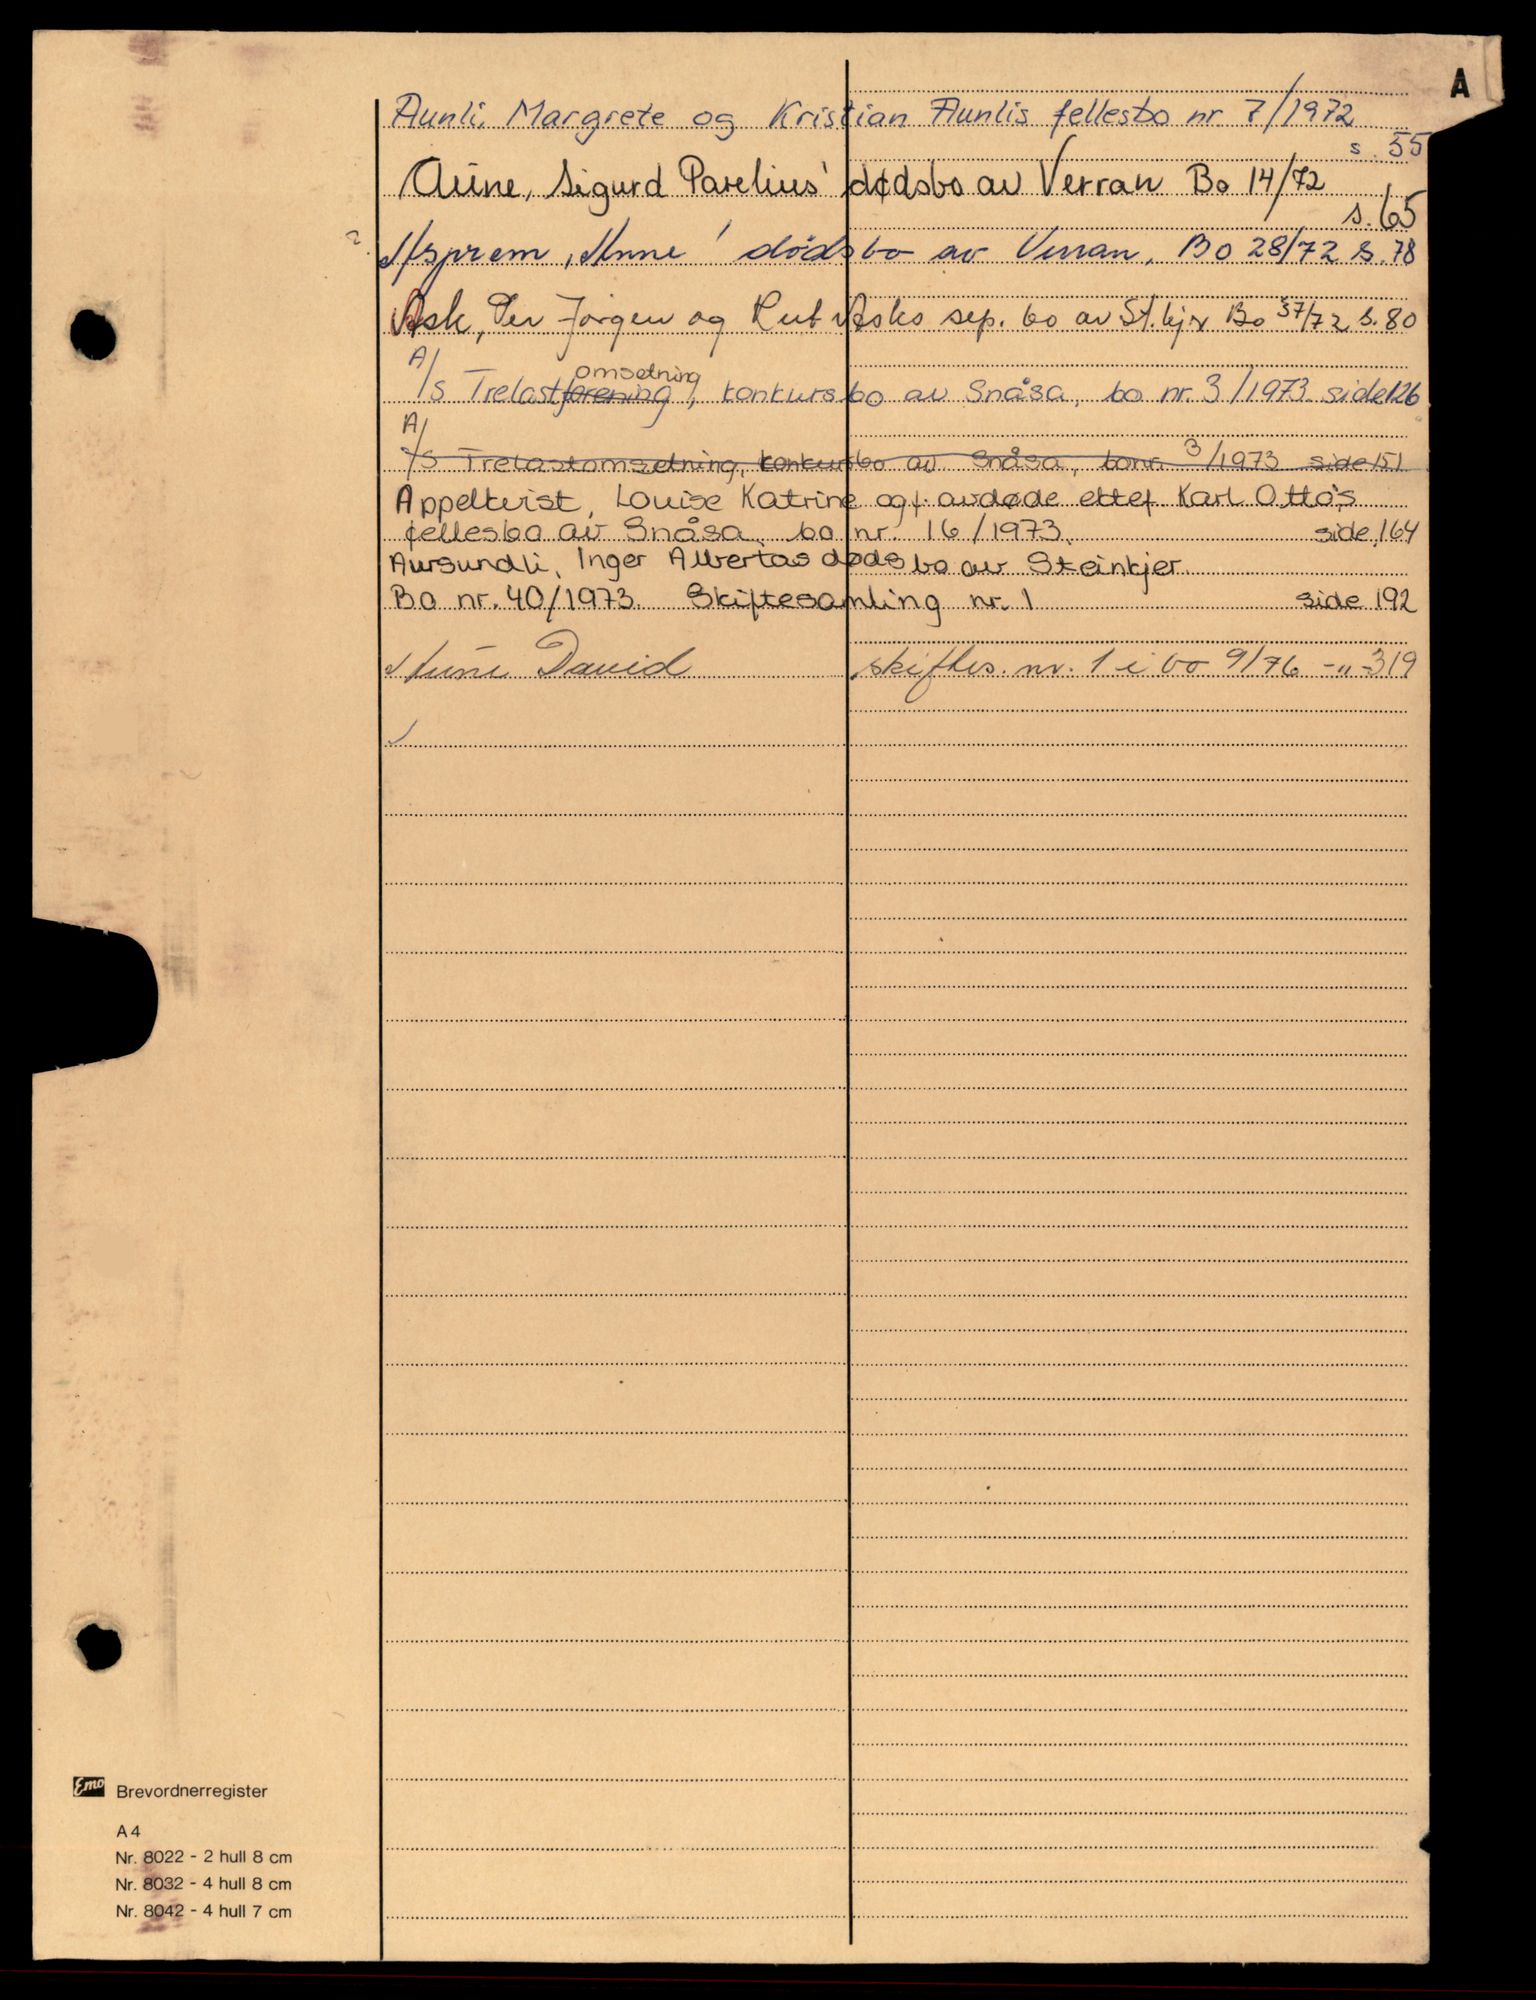 A
Aunli, Margrete og Kristian Aunlis fellesbo nr 7/1972
s. 55
Aune, Sigurd Parelius' dødsbo av Verran Bo 14/72
s. 65
? Asprem, Anne' dødsbo av Verran, Bo 28/72 s. 78
Ask, Per Jørgen og Rut Asks sep. bo av St.kjr Bo 37/72 s. 80
A/S Trelastforening omsetning, konkursbo av Snåsa, bo nr. 3/1973 side 126
A/S Trelastomsetning, konkursbo av Snåsa, bonr. 3/1973 side 151
Appelkvist, Louise Katrine og f. avdøde ektef. Karl Otto's
fellesbo av Snåsa, bo nr. 16/1973. side 164
Aursundli, Inger Albertas dødsbo av Steinkjer.
Bo nr. 40/1973. Skiftesamling nr. 1 side 192
Aune David skiftes. nr. 1 i bo 9/76 -"- 319
Emo Brevordnerregister
A4
Nr. 8022 - 2 hull 8 cm
Nr. 8032 - 4 hull 8 cm
Nr. 8042 - 4 hull 7 cm